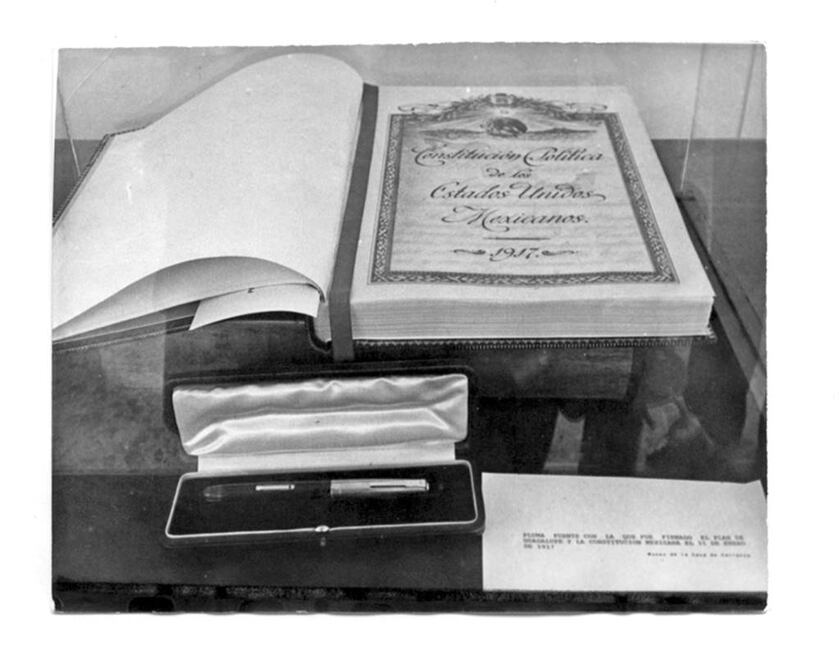 Constitución Política
de los
Estados Unidos
Mexicanos.
1917.
PLUMA FUENTE CON LA QUE FUE FIRMADO EL PLAN DE
GUADALUPE Y LA CONSTITUCION MEXICANA EL 31 DE ENERO
DE 1917
Museo de la Casa de Carranza